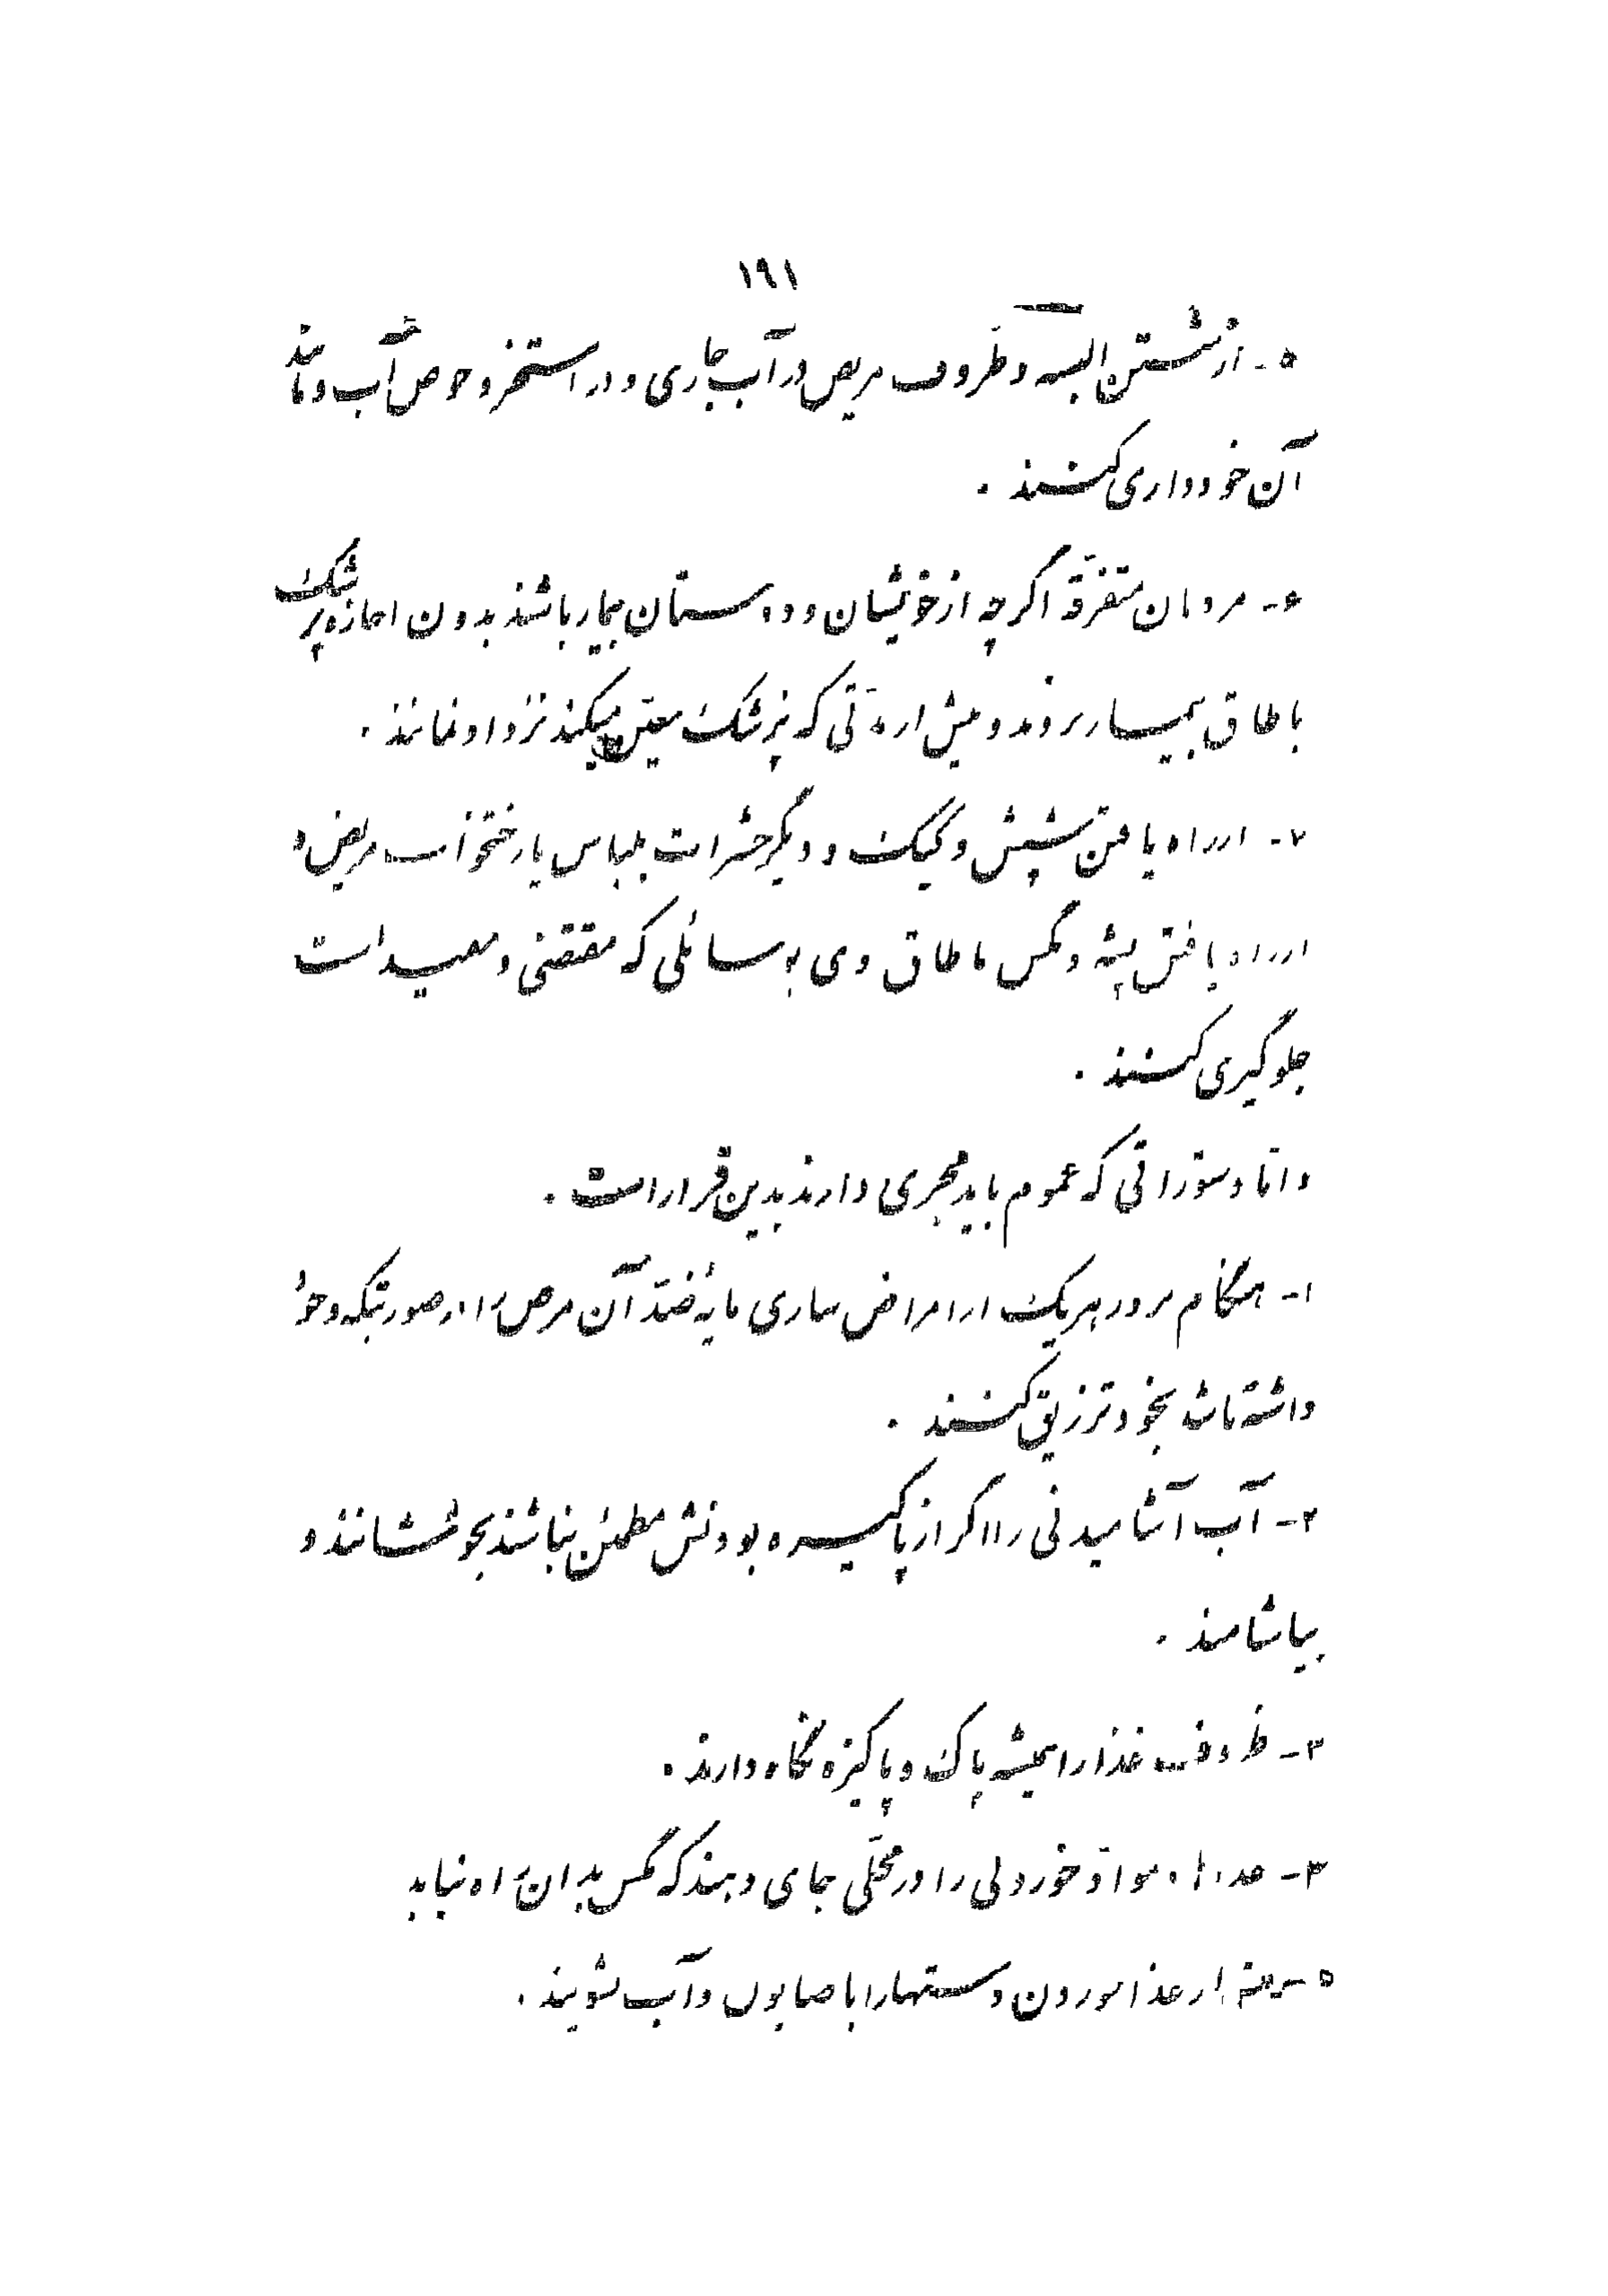 ۱۹۱
۵- از شستن البسه و ظروف مریض در آب جاری و در استخر و حوض آب و مانند
آن خودداری کنند .
۶- مردمان متفرّقه اگر چه از خویشان و دوستان بیمار باشند بدون اجازه پزشک
باطاق بیمار نروند و بیش از مدّتی که پزشک معیّن میکند نزد او نمانند .
۷- از راه یافتن شپش و کیک و دیگر حشرات بلباس یا رختخواب مریض و
از راه یافتن پشه و مگس باطاق وی بوسائلی که مقتضی و مفید است
جلوگیری کنند .
و امّا دستوراتی که عموم باید مجری دارند بدین قرار است .
۱- هنگام مرور هریک از امراض ساری مایهٔ ضدّ آن مرض را در صورتیکه وجود
داشته باشد بخود تزریق کنند .
۲- آب آشامیدنی را اگر از پاکیزه بودنش مطمئن نباشند بجوشانند و
بیاشامند .
۳- ظروف غذا را همیشه پاک و پاکیزه نگاه دارند .
۴- غذاها و موادّ خوردنی را در محلّی جای دهند که مگس بدان راه نیابد
۵- از غذا خوردن دستها را با صابون و آب بشویند .